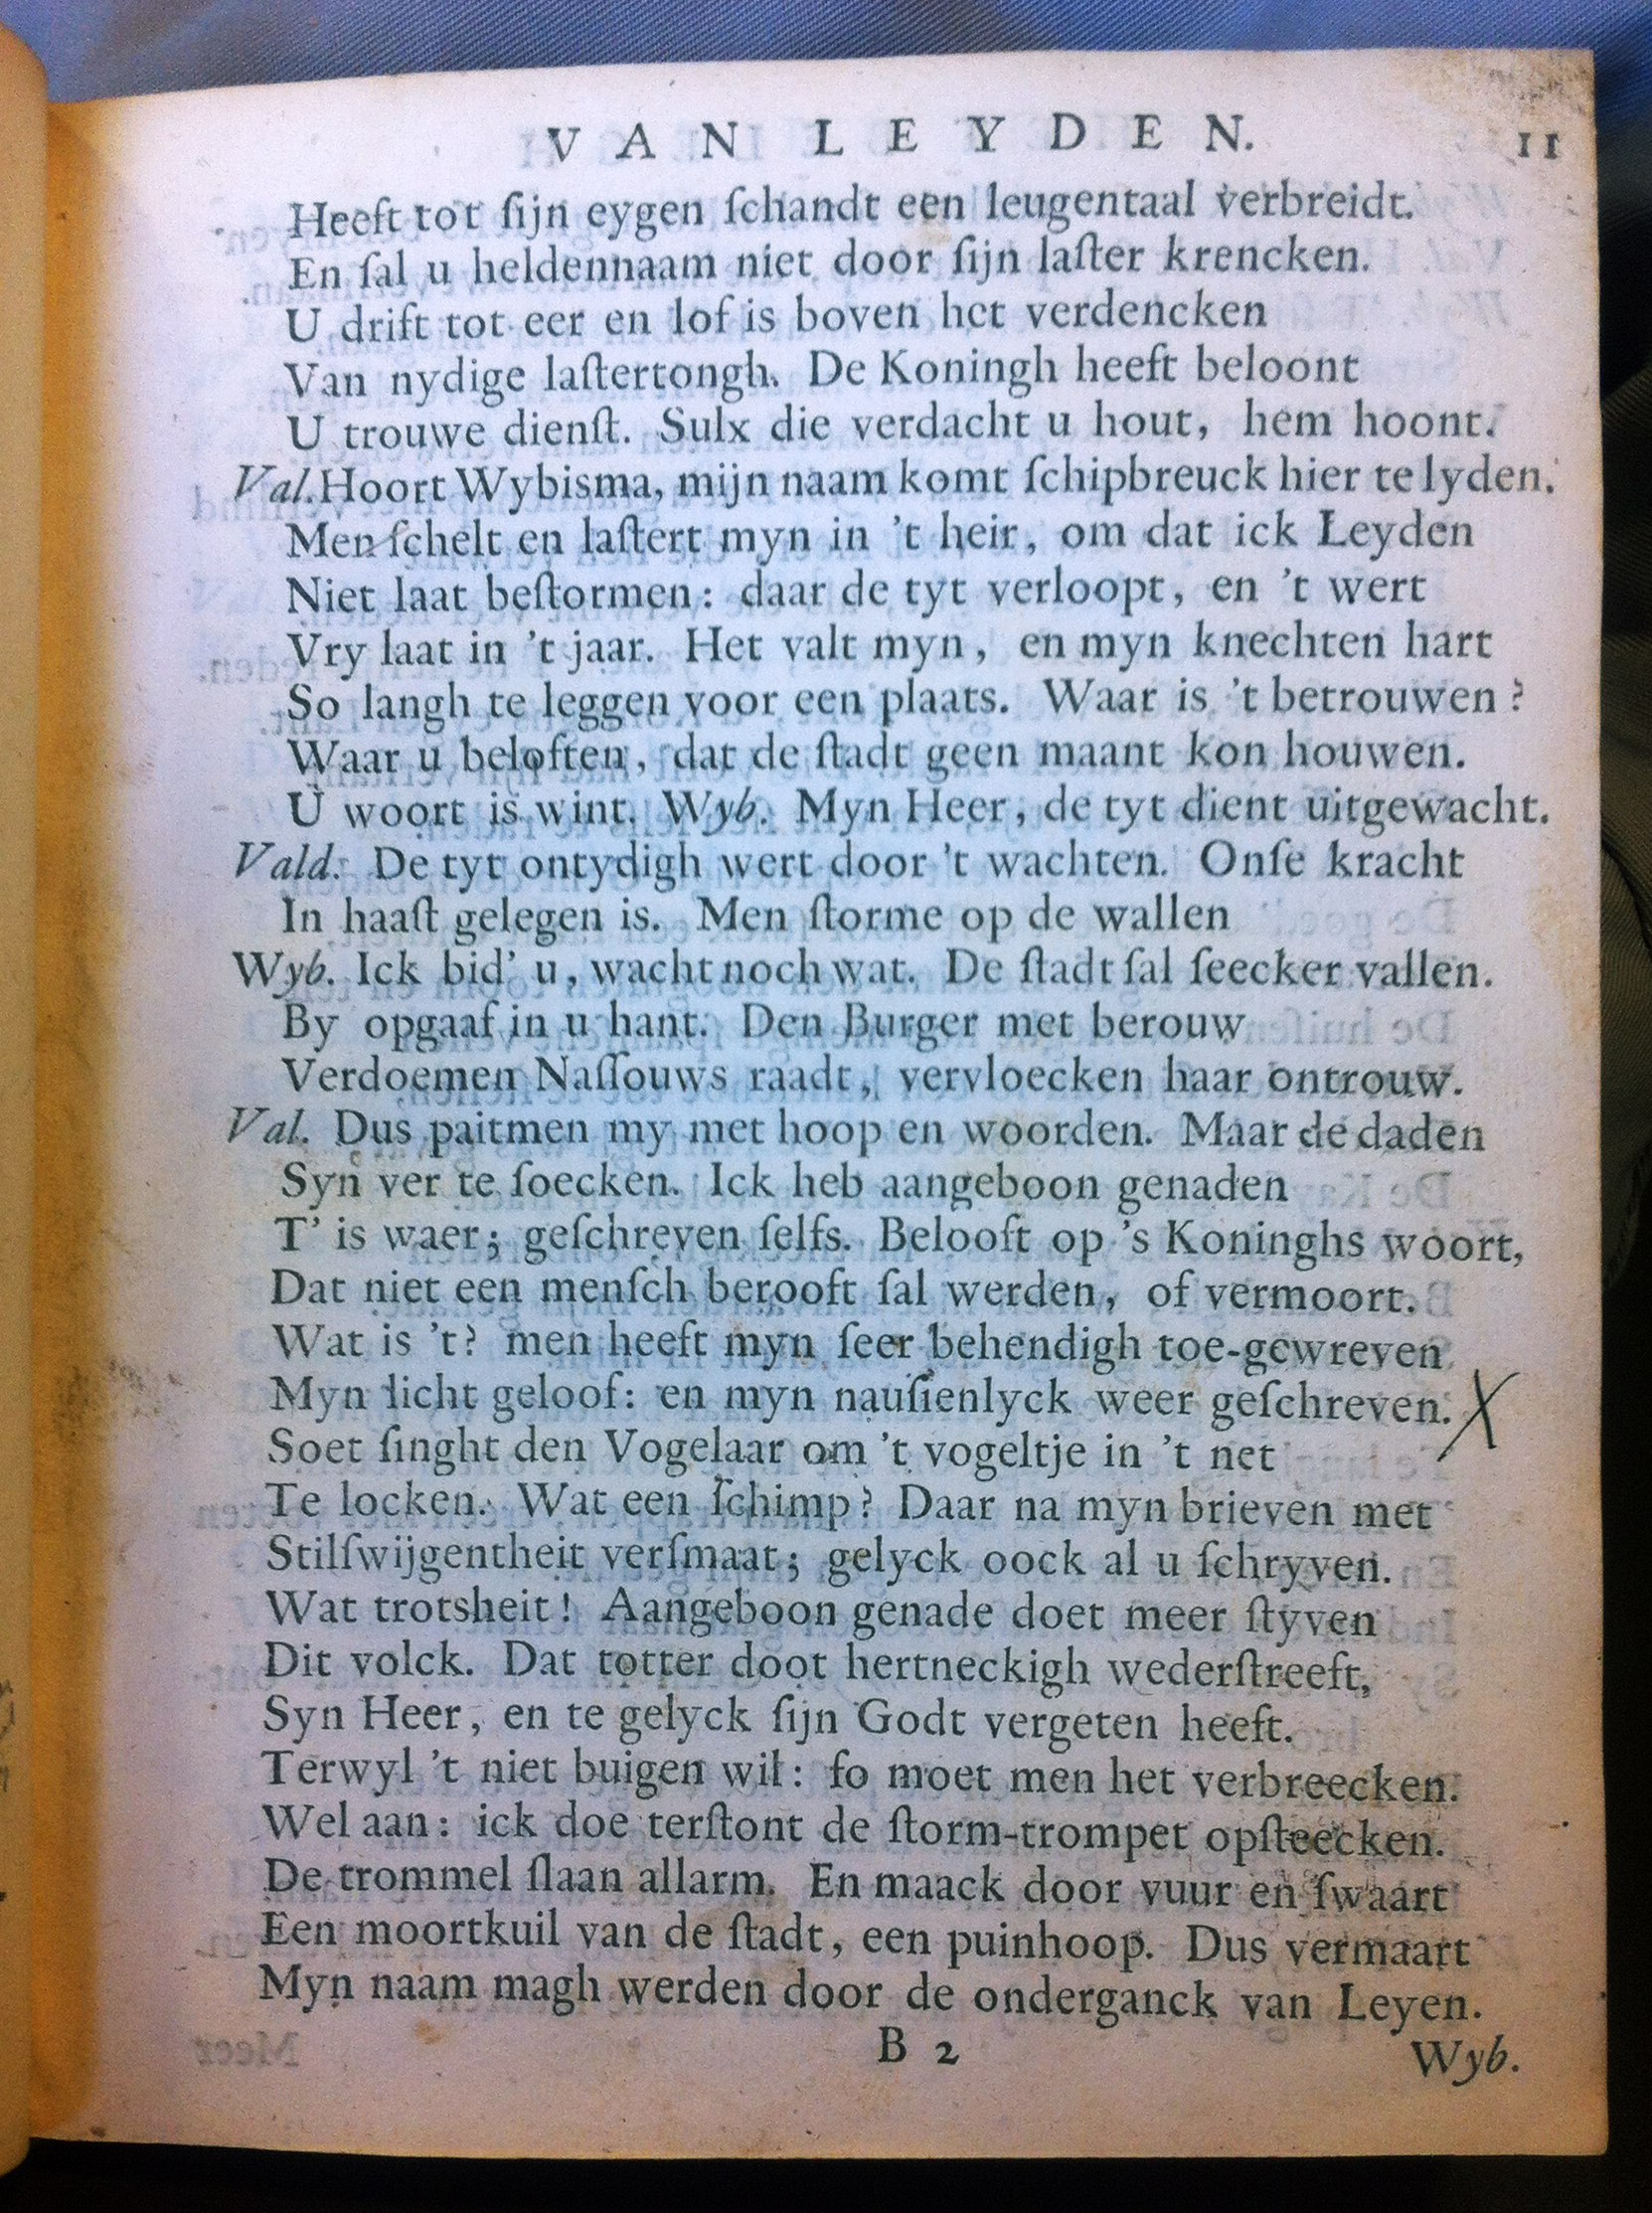 VAN LEYDEN. 11
Heeft tot ſijn eygen ſchandt een leugentaal verbreidt.
En ſal u heldennaam niet door ſijn laſter krencken.
U drift tot eer en lof is boven het verdencken
Van nydige laſtertongh. De Koningh heeft beloont
U trouwe dienſt. Sulx die verdacht u hout, hem hoont.
Val. Hoort Wybisma, mijn naam komt ſchipbreuck hier te lyden.
Men ſchelt en laſtert myn in 't heir, om dat ick Leyden
Niet laat beſtormen: daar de tyt verloopt, en 't wert
Vry laat in 't jaar. Het valt myn, en myn knechten hart
So langh te leggen voor een plaats. Waar is 't betrouwen?
Waar u beloften, dat de ſtadt geen maant kon houwen.
U woort is wint. Wyb. Myn Heer, de tyt dient uitgewacht.
Vald. De tyt ontydigh wert door 't wachten. Onſe kracht
In haaſt gelegen is. Men ſtorme op de wallen
Wyb. Ick bid' u, wacht noch wat. De ſtadt ſal ſeecker vallen.
By opgaaf in u hant. Den Burger met berouw
Verdoemen Naſſouws raadt, vervloecken haar ontrouw.
Val. Dus paitmen my met hoop en woorden. Maar de daden
Syn ver te ſoecken. Ick heb aangeboon genaden
T' is waer; geſchreven ſelfs. Belooft op 's Koninghs woort,
Dat niet een menſch berooft ſal werden, of vermoort.
Wat is 't? men heeft myn ſeer behendigh toe-gewreven
Myn licht geloof: en myn nauſienlyck weer geſchreven. X
Soet ſinght den Vogelaar om 't vogeltje in 't net
Te locken. Wat een ſchimp? Daar na myn brieven met
Stilſwijgentheit verſmaat; gelyck oock al u ſchryven.
Wat trotsheit! Aangeboon genade doet meer ſtyven
Dit volck. Dat totter doot hertneckigh wederſtreeft,
Syn Heer, en te gelyck ſijn Godt vergeten heeft.
Terwyl 't niet buigen wil: ſo moet men het verbreecken.
Wel aan: ick doe terſtont de ſtorm-trompet opſteecken.
De trommel ſlaan allarm. En maack door vuur en ſwaart
Een moortkuil van de ſtadt, een puinhoop. Dus vermaart
Myn naam magh werden door de onderganck van Leyen.
B 2 Wyb.